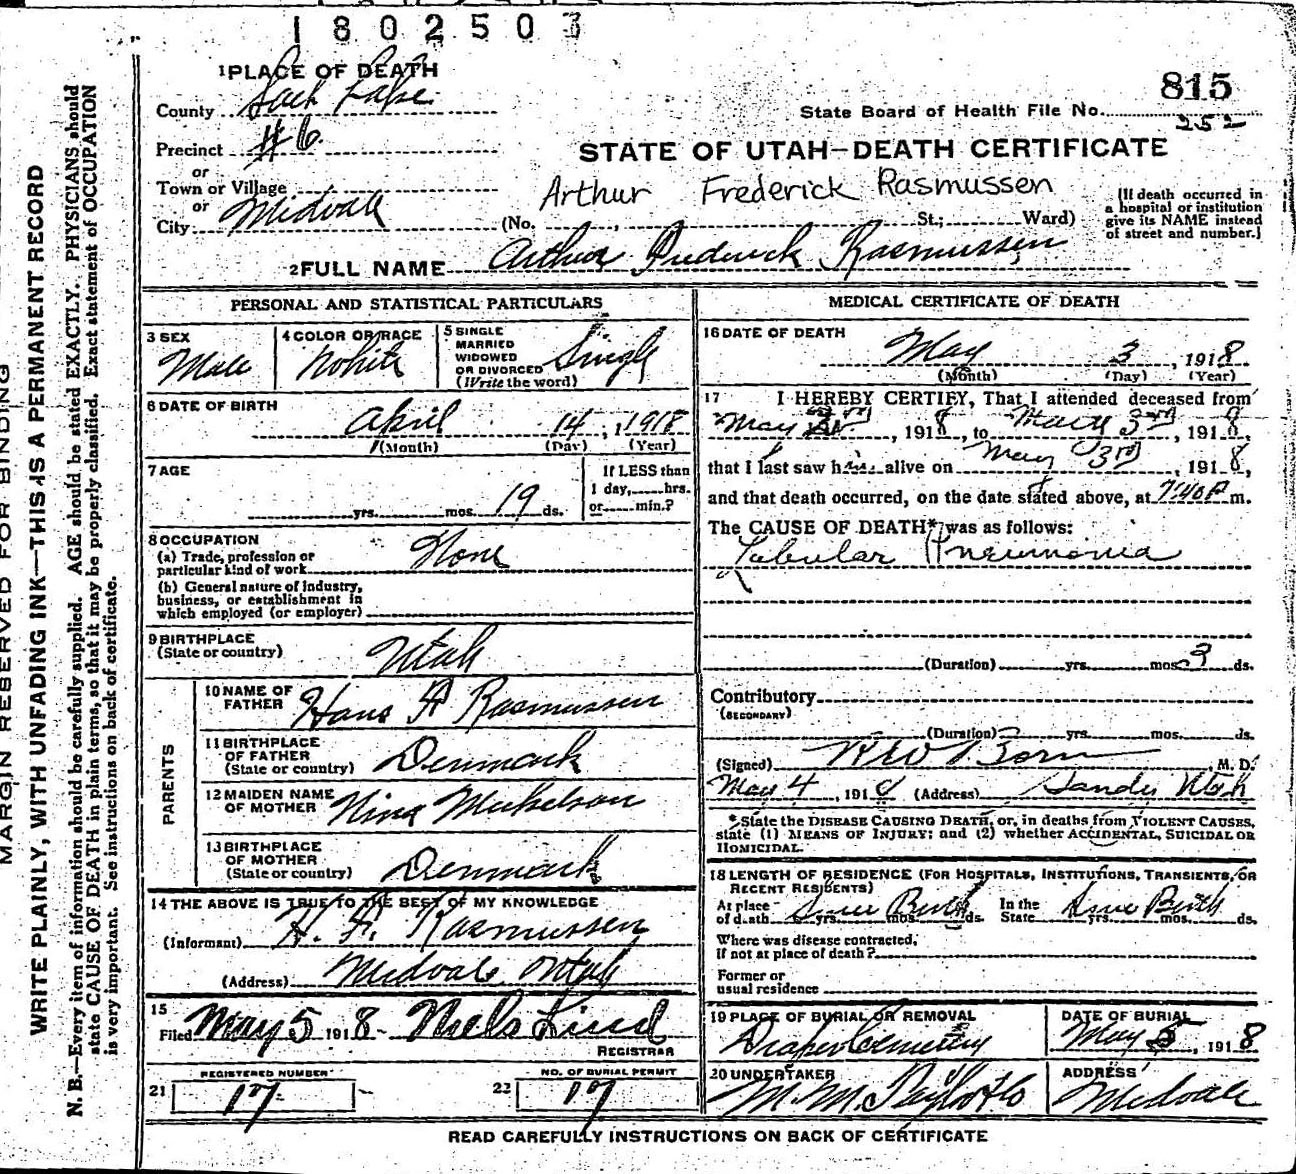 1802503
1 PLACE OF DEATH
County Salt Lake
Precinct #6
or
Town or Village
or
City Midvale
815
State Board of Health File No.
252
STATE OF UTAH—DEATH CERTIFICATE
Arthur Frederick Rasmussen
(No. , St.; Ward)
(If death occurred in
a hospital or institution
give its NAME instead
of street and number.)
2 FULL NAME Arthur Frederick Rasmussen
MARGIN RESERVED FOR BINDING
WRITE PLAINLY, WITH UNFADING INK—THIS IS A PERMANENT RECORD
N. B.—Every item of information should be carefully supplied. AGE should be stated EXACTLY. PHYSICIANS should
state CAUSE OF DEATH in plain terms, so that it may be properly classified. Exact statement of OCCUPATION
is very important. See instructions on back of certificate.
PERSONAL AND STATISTICAL PARTICULARS
3 SEX
Male
4 COLOR OR RACE
White
5 SINGLE
MARRIED
WIDOWED
OR DIVORCED
(Write the word)
Single
6 DATE OF BIRTH
April 14, 1918
(Month) (Day) (Year)
7 AGE
yrs. mos. 19 ds.
If LESS than
1 day, hrs.
or min.?
8 OCCUPATION
(a) Trade, profession or
particular kind of work None
(b) General nature of industry,
business, or establishment in
which employed (or employer)
9 BIRTHPLACE
(State or country) Utah
PARENTS
10 NAME OF
FATHER Hans F Rasmussen
11 BIRTHPLACE
OF FATHER
(State or country) Denmark
12 MAIDEN NAME
OF MOTHER Nina Mickelson
13 BIRTHPLACE
OF MOTHER
(State or country) Denmark
14 THE ABOVE IS TRUE TO THE BEST OF MY KNOWLEDGE
(Informant) H. F. Rasmussen
(Address) Midvale Utah
15
Filed May 5 1918- Niels Lind
REGISTRAR
REGISTERED NUMBER
21 17
NO. OF BURIAL PERMIT
22 17
MEDICAL CERTIFICATE OF DEATH
16 DATE OF DEATH
May 3, 1918
(Month) (Day) (Year)
17 I HEREBY CERTIFY, That I attended deceased from
May , 1918, to May 3rd, 1918,
that I last saw him alive on May 3rd, 1918,
and that death occurred, on the date stated above, at 7:40P m.
The CAUSE OF DEATH* was as follows:
Lobular Pneumonia
(Duration) yrs. mos 3 ds.
Contributory
(SECONDARY)
(Duration) yrs. mos. ds.
(Signed) , M. D.
May 4, 1918 (Address) Sandy Utah
*State the DISEASE CAUSING DEATH, or, in deaths from VIOLENT CAUSES,
state (1) MEANS OF INJURY; and (2) whether ACCIDENTAL, SUICIDAL OR
HOMICIDAL.
18 LENGTH OF RESIDENCE (FOR HOSPITALS, INSTITUTIONS, TRANSIENTS, OR
RECENT RESIDENTS)
At place
of death Since Birth yrs. mos. ds. In the
State Since Birth yrs. mos. ds.
Where was disease contracted,
if not at place of death?
Former or
usual residence
19 PLACE OF BURIAL OR REMOVAL
Draper Cemetery
DATE OF BURIAL
May 5, 1918
20 UNDERTAKER
M. M.
ADDRESS
Midvale
READ CAREFULLY INSTRUCTIONS ON BACK OF CERTIFICATE